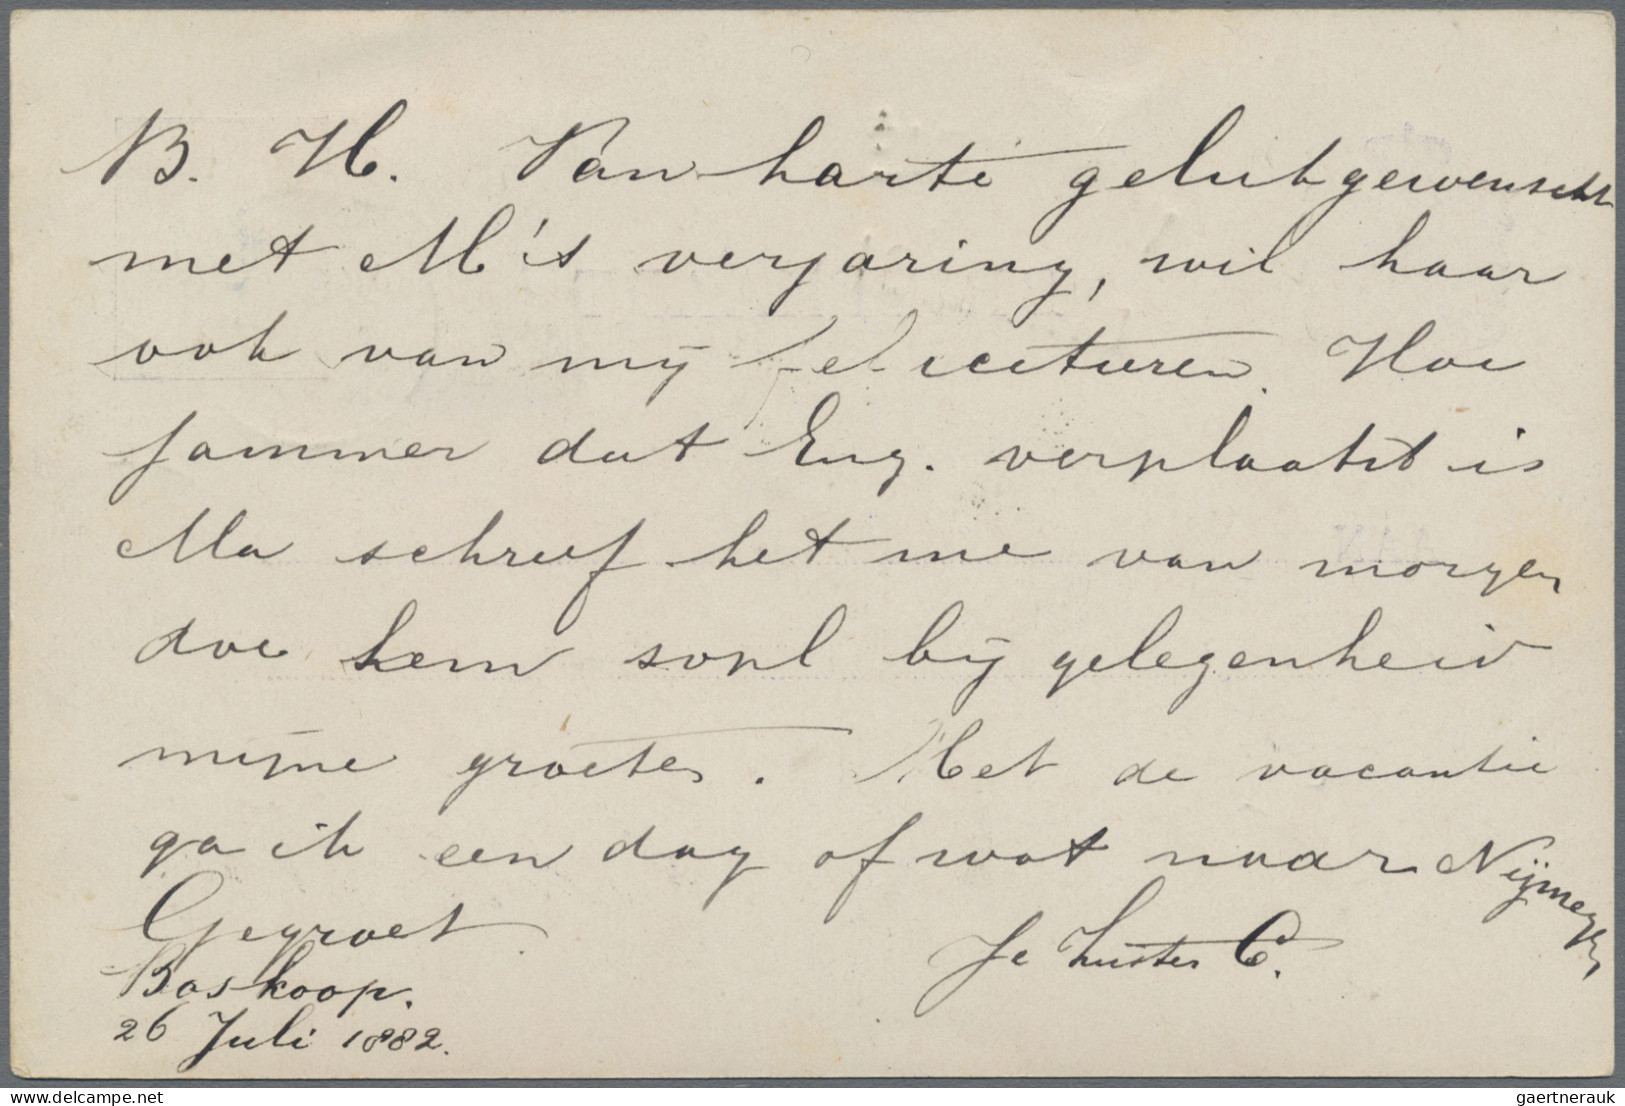 B. H. Van harte gelukgewenscht
met M's verjaring, wil haar
ook van mij feliciteeren. Hoe
jammer dat Eug. verplaatst is
Ma schreef het me van morgen
doe hem s'opl bij gelegenheid
mijne groeten. Met de vacantie
ga ik een dag of wat naar Nijmegen
Gegroet
Je zuster C.
Boskoop.
26 Juli 1882.
the-saleroom.com
gaertnerauk